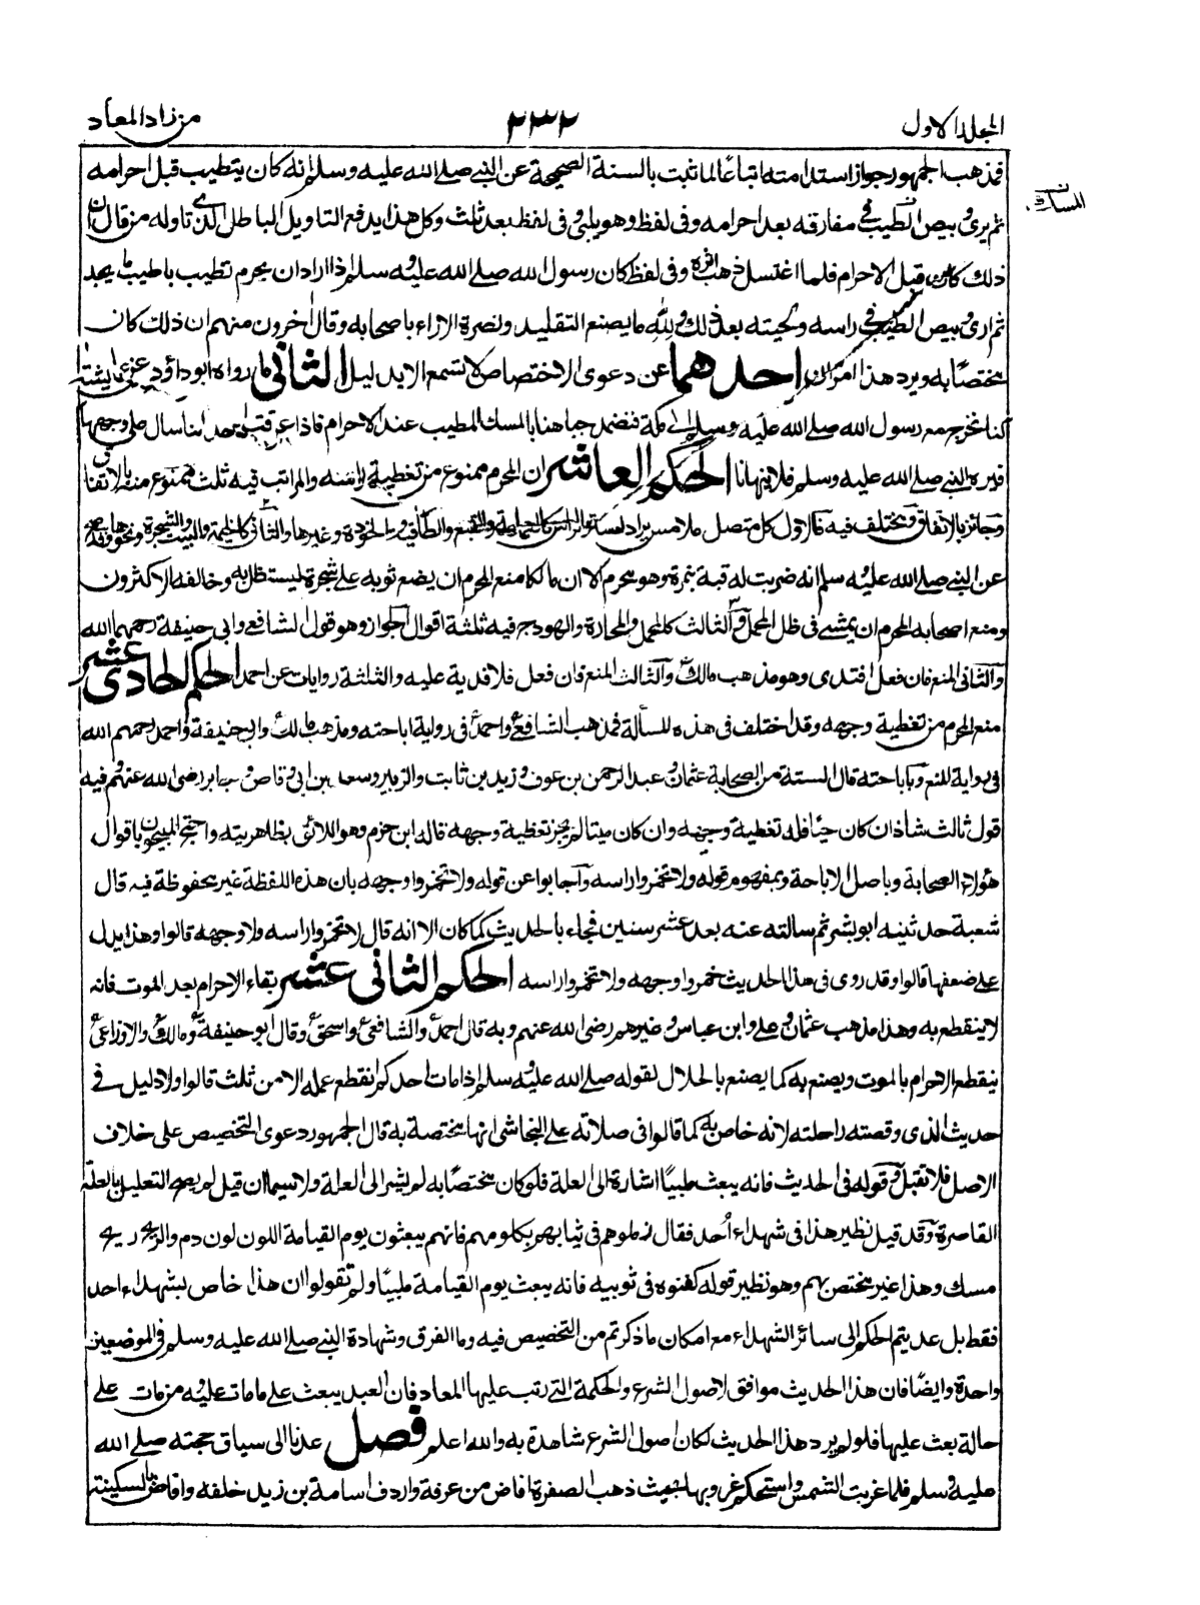 المجلد الاول
٢٣٢
من زاد المعاد
فمذهب الجمهور جواز استدامته اتباعا لما ثبت بالسنة الصحيحة عن النبي صلى الله عليه وسلم انه كان يتطيب قبل احرامه
ثم يرى وبيص الطيب في مفارقه بعد احرامه وفي لفظ وهو يلبي وفي لفظ بعد ثلث وكل هذا يدفع التاويل الباطل الذي تاوله من قال ان
ذلك كان قبل الاحرام فلما اغتسل ذهب اثره وفي لفظ كان رسول الله صلى الله عليه وسلم اذا اراد ان يحرم تطيب باطيب ما يجد
ثم ارى وبيص الطيب في راسه ولحيته بعد ذلك ولله ما يصنع التقليد ونصرة الاراء باصحابه وقال اخرون منهم ان ذلك كان
مختصا به ويرد هذا امران احدهما عن دعوى الاختصاص لا تسمع الا بدليل الثاني ما رواه ابو داؤد عن عايشة
كنا نخرج مع رسول الله صلى الله عليه وسلم الى مكة فنضمد جباهنا بالمسك المطيب عند الاحرام فاذا عرقت احدانا سال على وجهها
فيره النبي صلى الله عليه وسلم فلا ينهانا الحكم العاشر ان المحرم ممنوع من تغطية راسه والمراتب فيه ثلث ممنوع منه بالاتفاق
وجائز بالاتفاق ومختلف فيه فالاول كل متصل ملامس يراد لستر الراس كالعمامة والقبع والطاقية والخوذة وغيرها والثاني كالخيمة والبيت والشجرة ونحوها وقد صح
عن النبي صلى الله عليه وسلم انه ضربت له قبة بنمرة وهو محرم الا ان مالكا منع المحرم ان يضع ثوبه على شجرة ليستظل به وخالفه الاكثرون
ومنع اصحابه المحرم ان يمشي في ظل المحمل والثالث كالمحمل والمحارة والهودج فيه ثلثة اقوال الجواز وهو قول الشافعي وابي حنيفة رحمهما الله
والثاني المنع فان فعل افتدى وهو مذهب مالك والثالث المنع فان فعل فلا فدية عليه والثلثة روايات عن احمد الحكم الحادي عشر
منع المحرم من تغطية وجهه وقد اختلف في هذه المسألة فمذهب الشافعي واحمد في رواية اباحته ومذهب مالك وابي حنيفة واحمد رحمهم الله
في رواية المنع وباباحته قال الستة من الصحابة عثمان وعبد الرحمن بن عوف وزيد بن ثابت والزبير وسعد بن ابي وقاص وجابر رضي الله عنهم وفيه
قول ثالث شاذ ان كان حيا فله تغطية وجهه وان كان ميتا لم يجز تغطية وجهه قاله ابن حزم وهو اللائق بظاهريته واحتج المبيحون باقوال
هؤلاء الصحابة وباصل الاباحة وبمفهوم قوله ولا تخمروا راسه واجابوا عن قوله ولا تخمروا وجهه بان هذه اللفظة غير محفوظة فيه قال
شعبة حدثنيه ابو بشر ثم سالته عنه بعد عشر سنين فجاء بالحديث كما كان الا انه قال لا تخمروا راسه ولا وجهه قالوا وهذا يدل
على ضعفها قالوا وقد روى في هذا الحديث خمروا وجهه ولا تخمروا راسه الحكم الثاني عشر بقاء الاحرام بعد الموت فانه
لا ينقطع به وهذا مذهب عثمان وعلي وابن عباس وغيرهم رضي الله عنهم وبه قال احمد والشافعي واسحق وقال ابو حنيفة ومالك والاوزاعي
ينقطع الاحرام بالموت ويصنع به كما يصنع بالحلال لقوله صلى الله عليه وسلم اذا مات احدكم انقطع عمله الا من ثلث قالوا ولا دليل في
حديث الذي وقصته راحلته لانه خاص به كما قالوا في صلاته على النجاشي انها مختصة به قال الجمهور دعوى التخصيص على خلاف
الاصل فلا تقبل وقوله في الحديث فانه يبعث ملبيا اشارة الى العلة فلو كان مختصا به لم يشر الى العلة ولا سيما ان قيل لا يصح التعليل بالعلة
القاصرة وقد قيل نظير هذا في شهداء أحد فقال زملوهم في ثيابهم بكلومهم فانهم يبعثون يوم القيامة اللون لون دم والريح ريح
مسك وهذا غير مختص بهم وهو نظير قوله كفنوه في ثوبيه فانه يبعث يوم القيامة ملبيا ولم تقولوا ان هذا خاص بشهداء احد
فقط بل عديتم الحكم الى سائر الشهداء مع امكان ما ذكرتم من التخصيص فيه وما الفرق وشهادة النبي صلى الله عليه وسلم في الموضعين
واحدة وايضا فان هذا الحديث موافق لاصول الشرع والحكمة التي رتب عليها المعاد فان العبد يبعث على ما مات عليه ومن مات على
حالة بعث عليها فلو لم يرد هذا الحديث لكان اصول الشرع شاهدة به والله اعلم فصل عدنا الى سياق حجته صلى الله
عليه وسلم فلما غربت الشمس واستحكم غروبها بحيث ذهب الصفرة افاض من عرفة واردف اسامة بن زيد خلفه وافاض بالسكينة